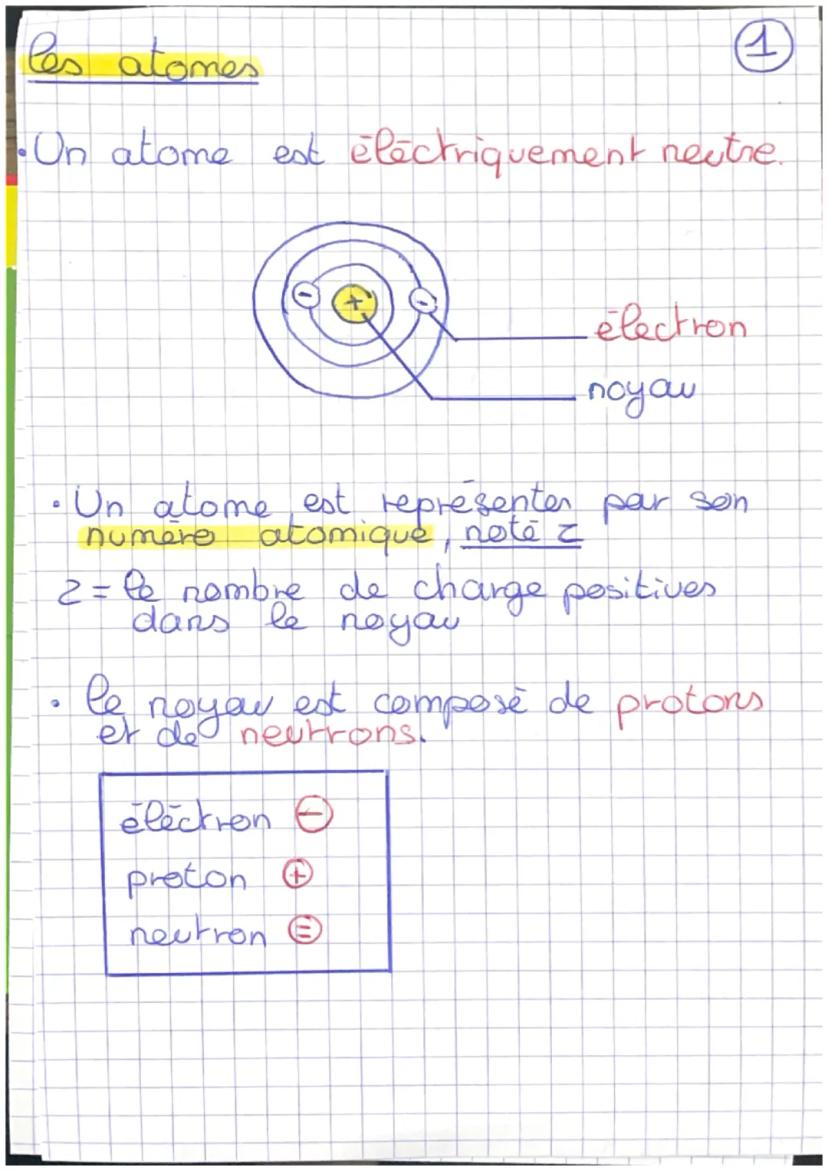 Les atomes
1
• Un atome est éléctriquement neutre.
- + -
électron
noyau
• Un atome est représenter par son
numéro atomique, noté Z
Z = le nombre de charge positives
dans le noyau
• Le noyau est composé de protons
et de neutrons.
éléctron -
proton +
neutron =